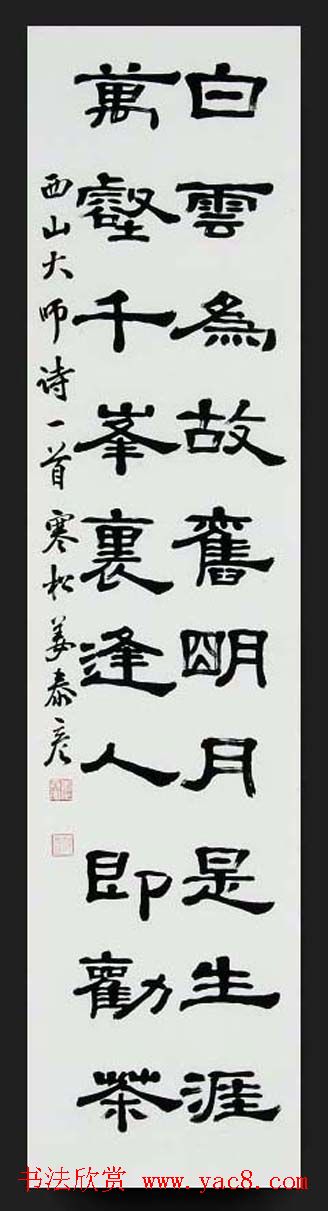 白雲為故舊明月是生涯
萬壑千峯裏逢人即勸茶
西山大师诗一首寒松姜泰彦
书法欣赏 www.yac8.com